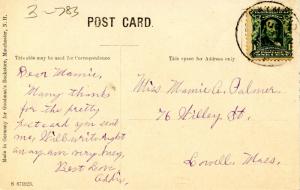 3-783
POST CARD.
This side may be used for Correspondence
This space for Address only
Made in Germany for Goodman's Bookstore, Manchester, N. H.
Dear Mamie,
Many thanks
for the pretty
postcard you sent
me, Will write Right
away am very busy,
Best Love
Miss Mamie A. Palmer
76 Willey St.
Lowell, Mass.